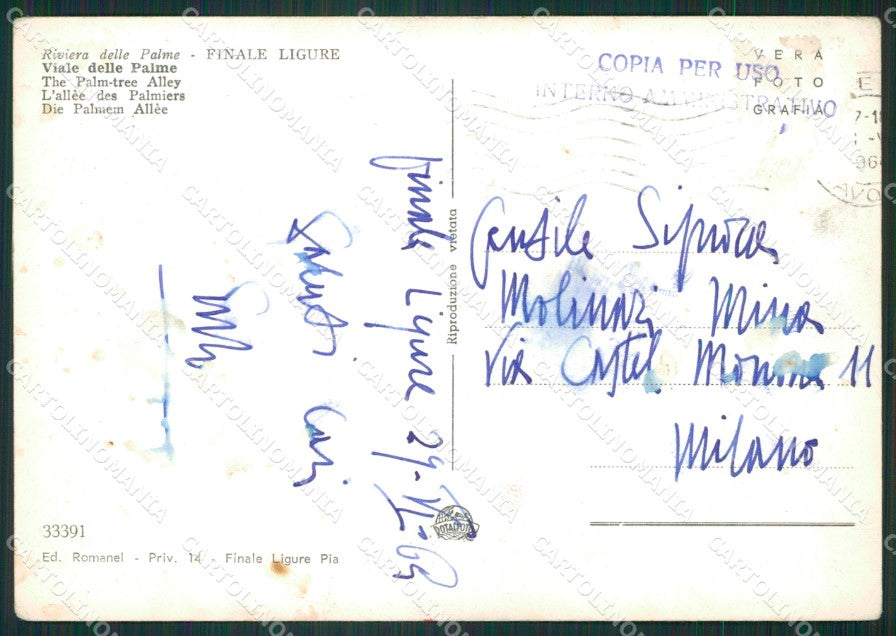 Riviera delle Palme - FINALE LIGURE
Viale delle Palme
The Palm-tree Alley
L'allèe des Palmiers
Die Palmem Allèe
COPIA PER USO
INTERNO AMMINISTRATIVO
VERA
FOTO
GRAFIA
Finale Ligure 29-VI-63
Saluti Cari
Riproduzione vietata
Gentile Signora
Molinari Mina
Via Castel Morrone 11
Milano
33391
Ed. Romanel - Priv. 14 - Finale Ligure Pia
CARTOLINOMANIA